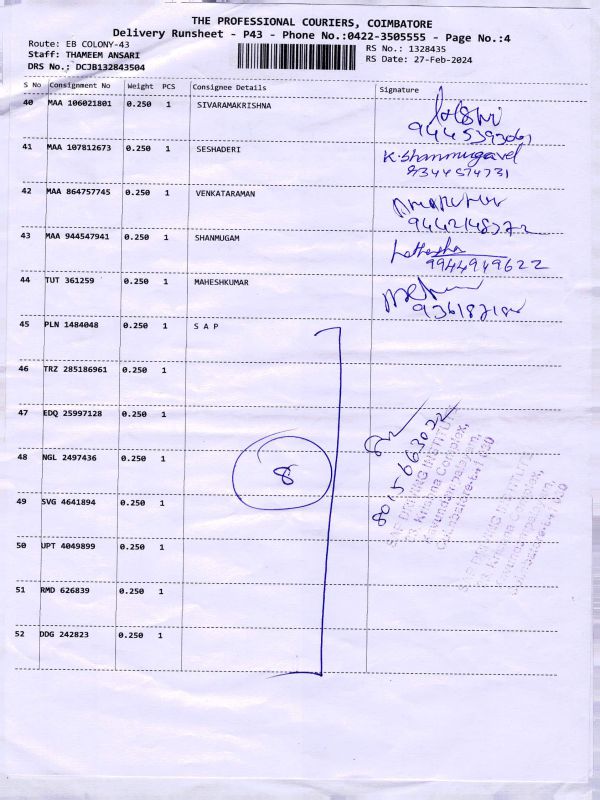 THE PROFESSIONAL COURIERS, COIMBATORE
Delivery Runsheet - P43 - Phone No.:0422-3505555 - Page No.:4
Route: EB COLONY-43
RS No.: 1328435
Staff: THAMEEM ANSARI
RS Date: 27-Feb-2024
DRS No.: DCJB132843504
S No Consignment No Weight PCS Consignee Details Signature
40 MAA 106021801 0.250 1 SIVARAMAKRISHNA
41 MAA 107812673 0.250 1 SESHADERI K. Shanmugavel
42 MAA 864757745 0.250 1 VENKATARAMAN
43 MAA 944547941 0.250 1 SHANMUGAM
9944949622
44 TUT 361259 0.250 1 MAHESHKUMAR
45 PLN 1484048 0.250 1 S A P
46 TRZ 285186961 0.250 1
47 EDQ 25997128 0.250 1
48 NGL 2497436 0.250 1 8
49 SVG 4641894 0.250 1
50 UPT 4049899 0.250 1
51 RMD 626839 0.250 1
52 DDG 242823 0.250 1